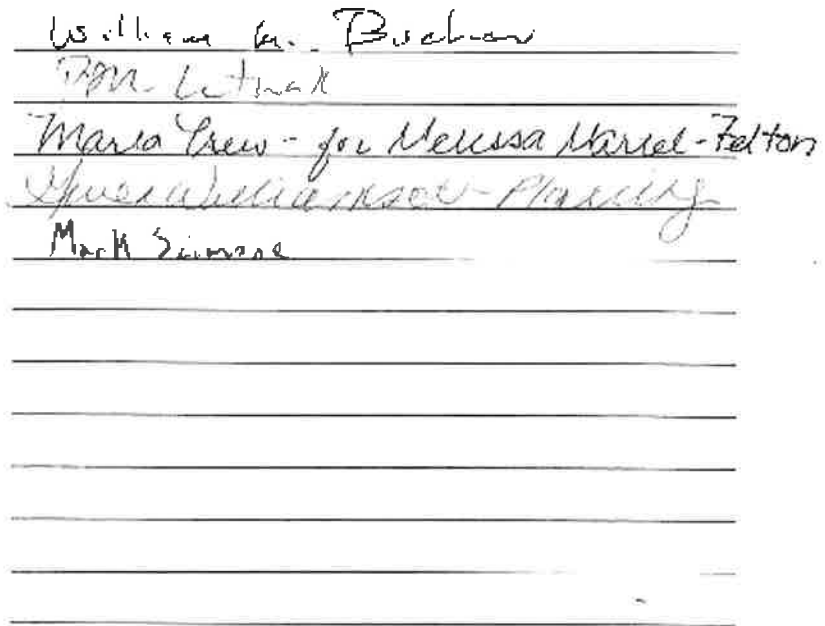 William M. Buchan
Marla Crew - for Melissa Marcel-Felton
Gwen Williamson - Planning
Mark Simone